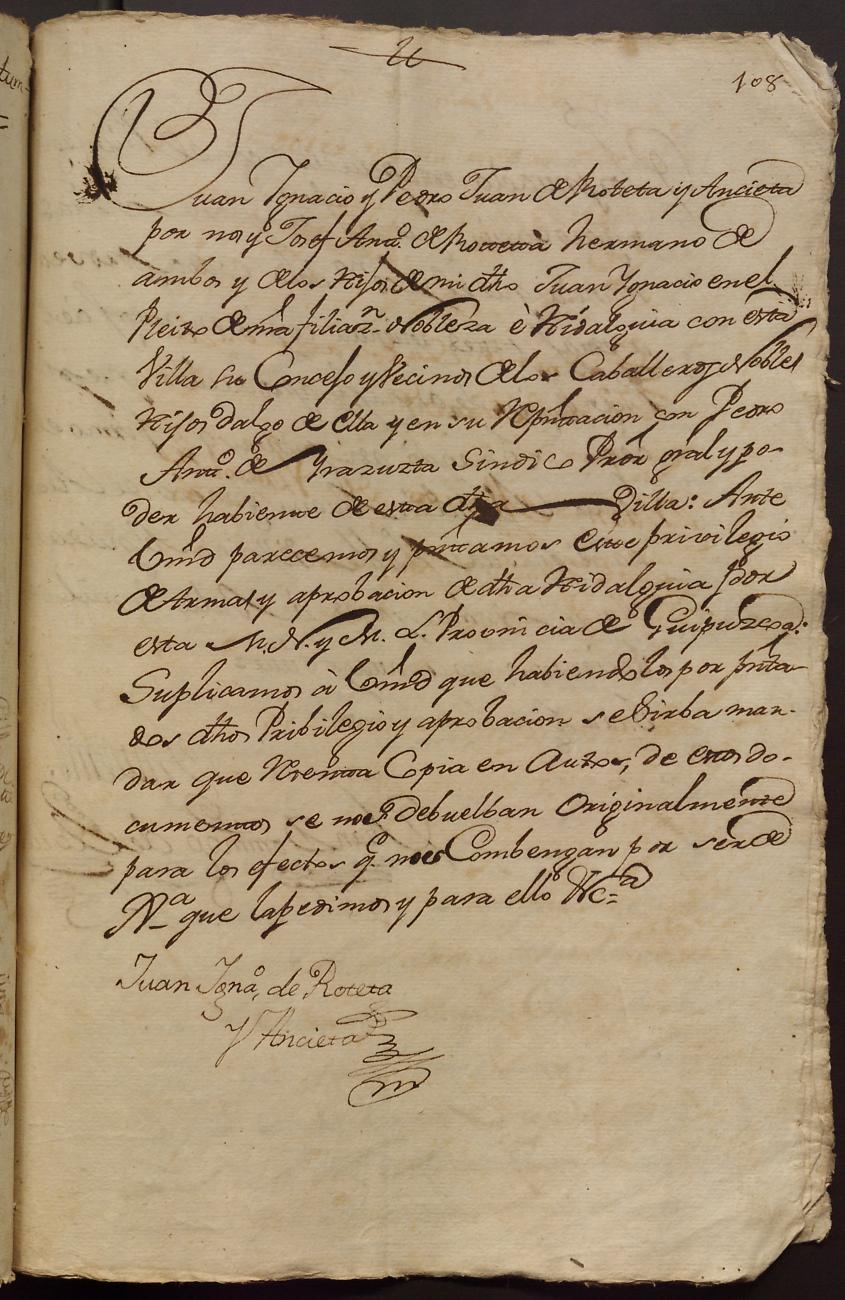 108
Juan Ygnacio y Pedro Juan de Roteta y Ancieta
por nos y Josef Anto. de Roteta hermano de
ambos y de los Hijos de mi dho Juan Ygnacio en el
Pleito de nra filiazn. Nobleza è Hidalguia con esta
Villa su Concejo y Vecinos de los Caballeros Nobles
Hijos dalgo de ella y en su Rpntacion con Pedro
Anto. de Yrazuzta Sindico Pror. gral y po-
der habiente de esta dha Villa: Ante
Vmd parecemos y pntamos este privilegio
de Armas y aprobacion de dha Hidalguia por
esta M. N. y M. L. Provincia de Guipuzcoa:
Suplicamos à Vmd que habiendolos por pnta-
dos dhos Pribilegio y aprobacion se Sirba man-
dar que Copia en Autos, de estos do-
cumentos se nos debuelban Originalmente
para los efectos q. nos Combengan por ser de
Jª que la pedimos y para ello &cª
Juan Ygnº. de Roteta
Y Ancieta